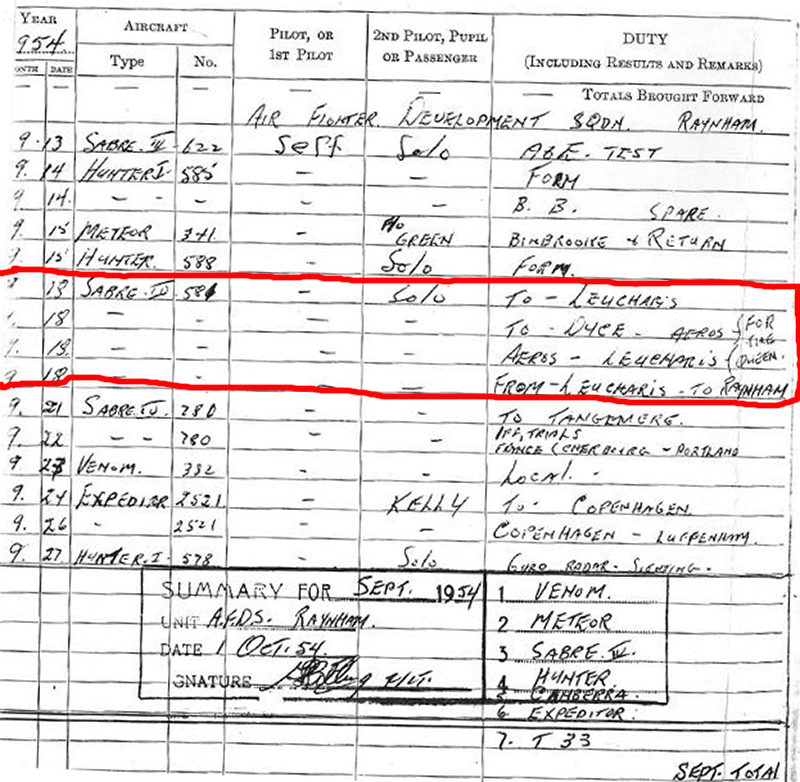 YEAR
954.
AIRCRAFT
PILOT, OR
1ST PILOT
2ND PILOT, PUPIL
OR PASSENGER
DUTY
(INCLUDING RESULTS AND REMARKS)
ONTH DATE Type No.
— — — — — — — TOTALS BROUGHT FORWARD
AIR FIGHTER DEVELOPMENT SQDN. RAYNHAM.
9 13 SABRE. IV 622 Self Solo A&E. TEST
9. 14 HUNTER I 585 - - FORM
9 14. - - - - - B. B. SPARE.
9. 15 METEOR 341 - P/O GREEN BINBROOKE & RETURN
9. 15 HUNTER. 588 - Solo FORM.
18 SABRE. IV 581 - Solo TO - LEUCHARS
18 - - - - TO - DYCE - AEROS { FOR
9. 18. - - - - AEROS - LEUCHARS { THE QUEEN.
9 18 - - - - FROM - LEUCHARS - TO RAYNHAM
9. 21 SABRE. IV. 780 - - TO TANGEMERE.
9. 22 - - 780 - - IFF, TRIALS
FRANCE (CHERBOURG - PORTLAND
9. 23 VENOM. 332 - LOCAL. -
9. 24 EXPEDITOR 2521 - KELLY TO - COPENHAGEN
9. 26 - 2521 - - COPENHAGEN - LUFFENHAM.
9. 27 HUNTER. I - 578 - Solo GYRO RADAR - SIGHTING -
SUMMARY FOR SEPT. 1954
UNIT A.F.D.S. RAYNHAM.
DATE 1 OCT. 54.
GNATURE F/LT.
1 VENOM.
2 METEOR
3 SABRE. IV.
4 HUNTER
5 CANBERRA.
6 EXPEDITOR.
7. T 33
SEPT. TOTAL